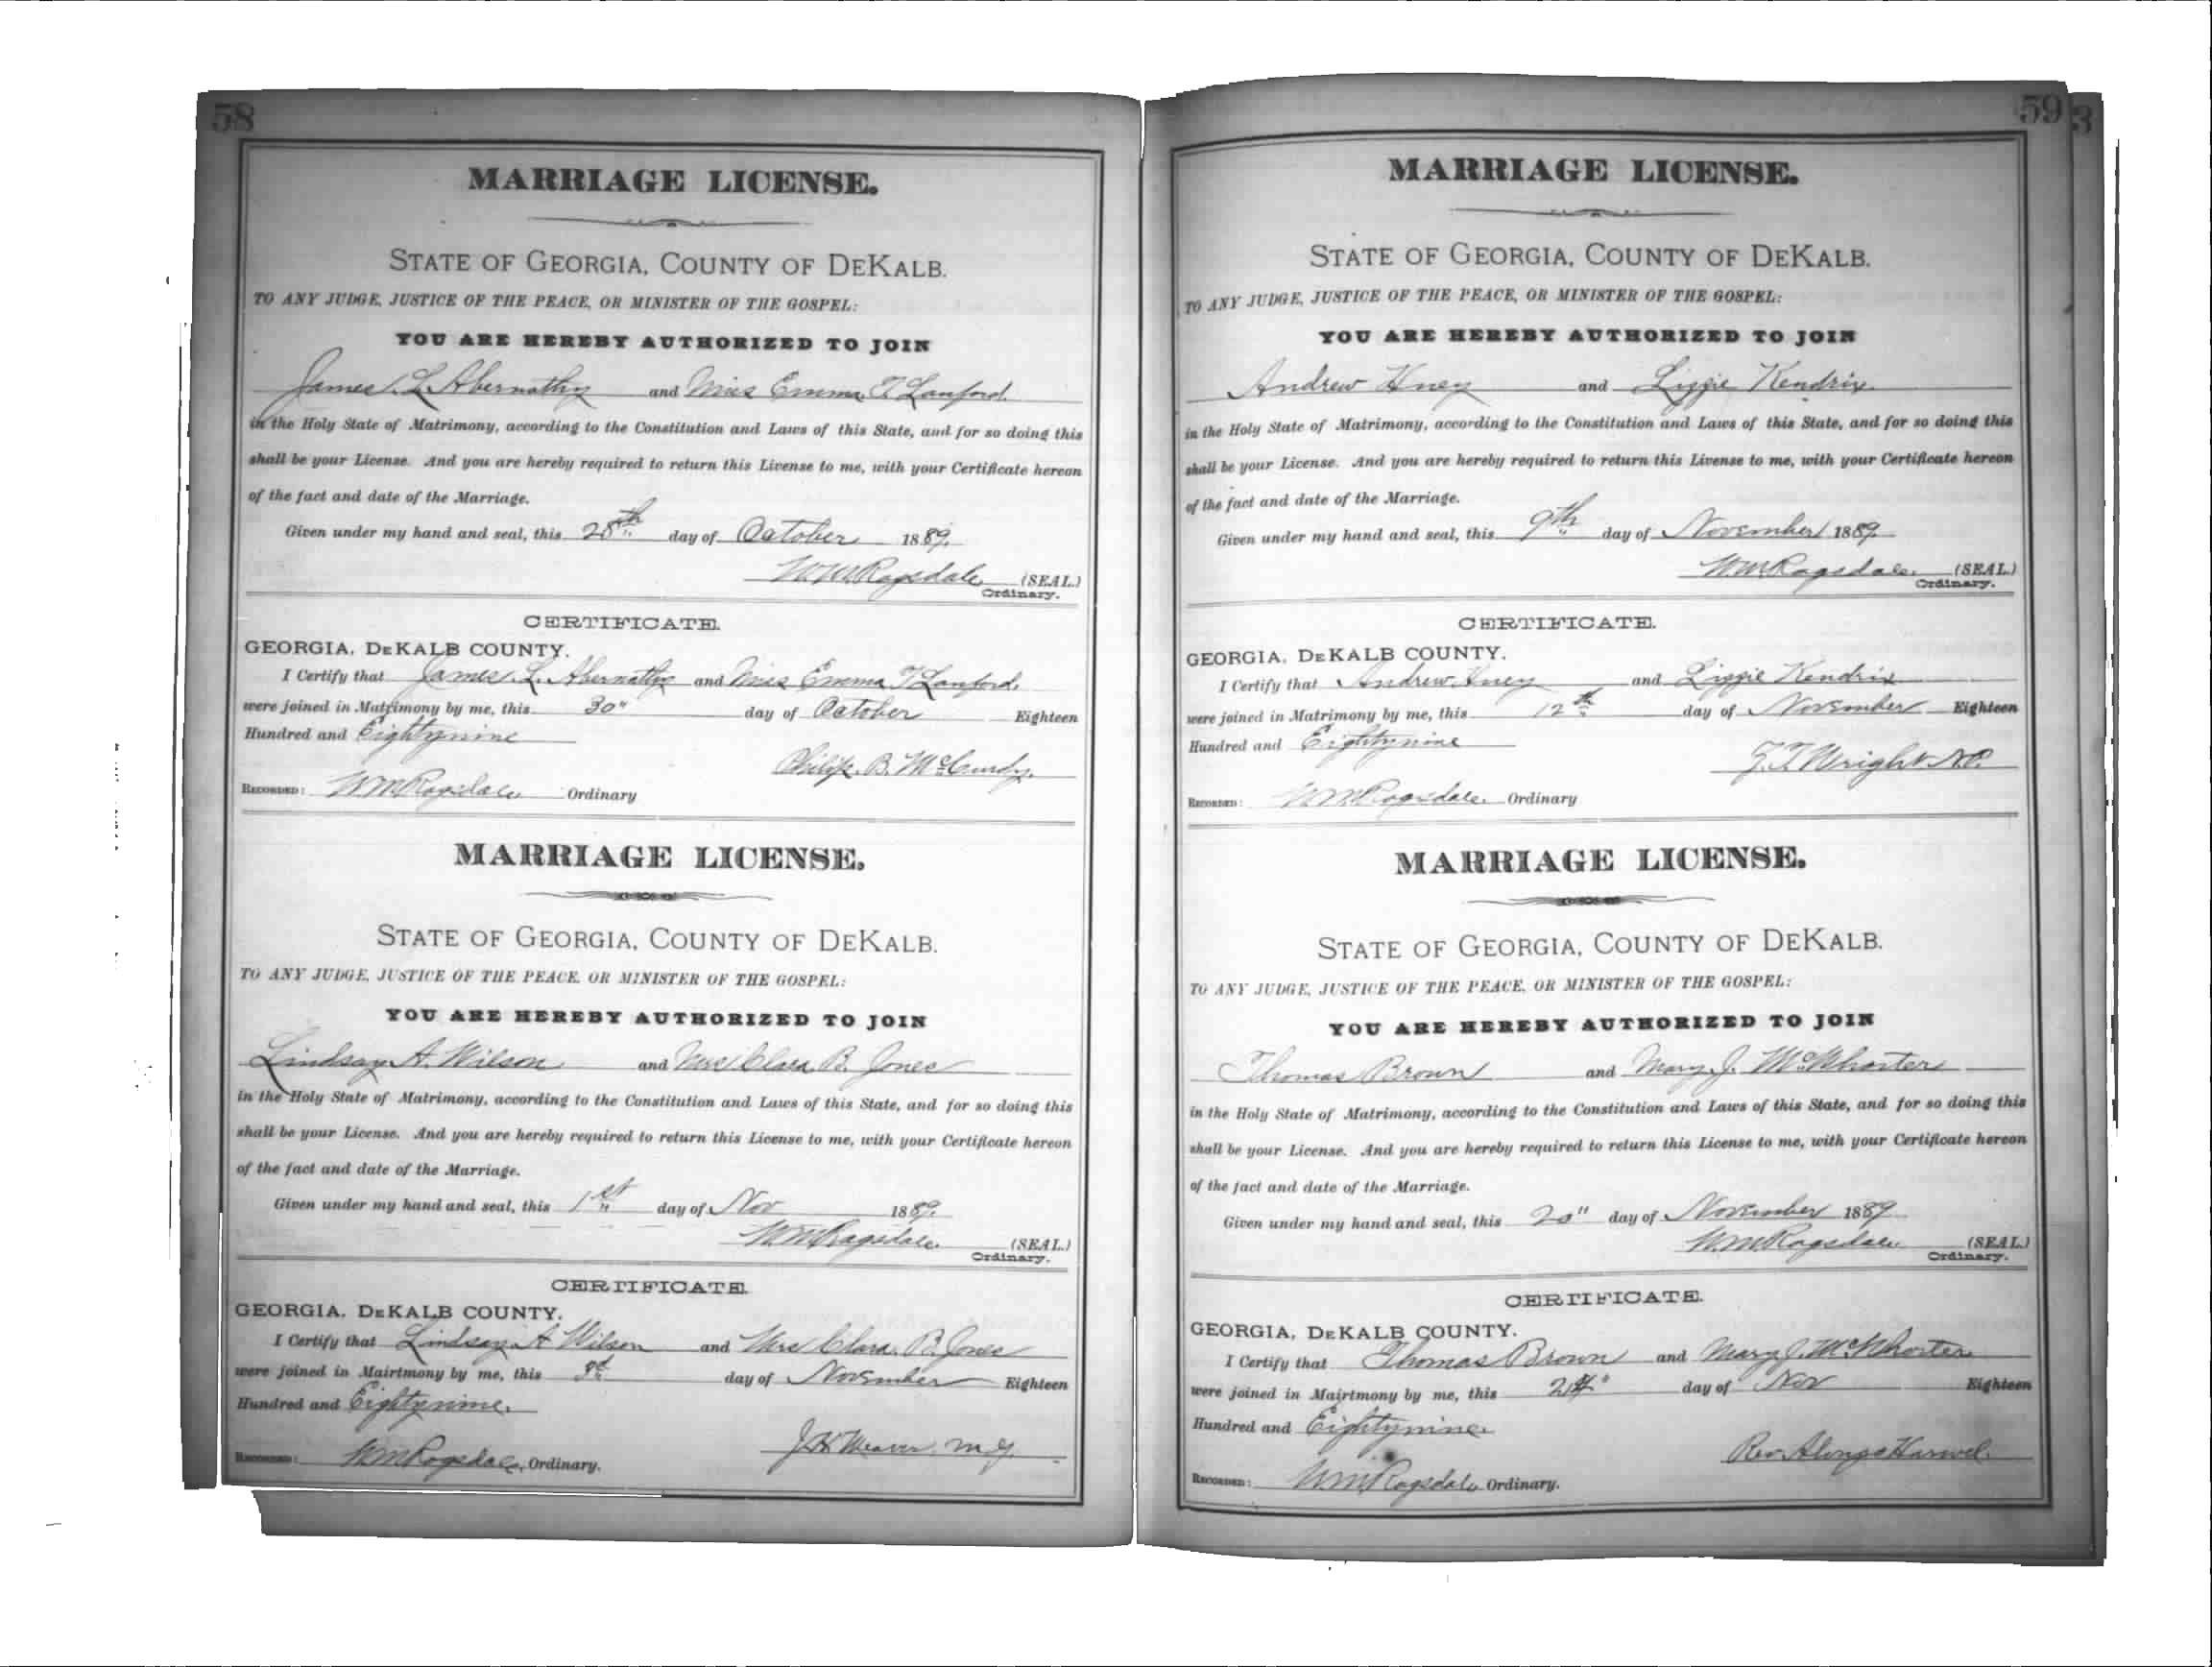 58
MARRIAGE LICENSE.
STATE OF GEORGIA, COUNTY OF DEKALB.
TO ANY JUDGE, JUSTICE OF THE PEACE, OR MINISTER OF THE GOSPEL:
YOU ARE HEREBY AUTHORIZED TO JOIN
James L. Abernathy and Miss Emma T. Lanford.
in the Holy State of Matrimony, according to the Constitution and Laws of this State, and for so doing this
shall be your License. And you are hereby required to return this License to me, with your Certificate hereon
of the fact and date of the Marriage.
Given under my hand and seal, this 28th day of October 1889.
W M Ragsdale (SEAL.)
Ordinary.
CERTIFICATE.
GEORGIA, DEKALB COUNTY.
I Certify that James L. Abernathy and Miss Emma T. Lanford.
were joined in Matrimony by me, this 30" day of October Eighteen
Hundred and Eightynine
Philip. B. McCurdy.
RECORDED: W M Ragsdale Ordinary
MARRIAGE LICENSE.
STATE OF GEORGIA, COUNTY OF DEKALB.
TO ANY JUDGE, JUSTICE OF THE PEACE, OR MINISTER OF THE GOSPEL:
YOU ARE HEREBY AUTHORIZED TO JOIN
Lindsay A. Wilson and Mrs Clara B. Jones
in the Holy State of Matrimony, according to the Constitution and Laws of this State, and for so doing this
shall be your License. And you are hereby required to return this License to me, with your Certificate hereon
of the fact and date of the Marriage.
Given under my hand and seal, this 1st day of Nov 1889.
W M Ragsdale. (SEAL.)
Ordinary.
CERTIFICATE.
GEORGIA, DEKALB COUNTY.
I Certify that Lindsay A Wilson and Mrs Clara. B. Jones
were joined in Mairtmony by me, this day of November Eighteen
Hundred and Eightynine.
J H Weaver. M G.
RECORDED: W M Ragsdale, Ordinary.
59
3
MARRIAGE LICENSE.
STATE OF GEORGIA, COUNTY OF DEKALB.
TO ANY JUDGE, JUSTICE OF THE PEACE, OR MINISTER OF THE GOSPEL:
YOU ARE HEREBY AUTHORIZED TO JOIN
Andrew and Lizzie Kendrix
in the Holy State of Matrimony, according to the Constitution and Laws of this State, and for so doing this
shall be your License. And you are hereby required to return this License to me, with your Certificate hereon
of the fact and date of the Marriage.
Given under my hand and seal, this 9th day of November 1889
W M Ragsdale. (SEAL.)
Ordinary.
CERTIFICATE.
GEORGIA, DEKALB COUNTY.
I Certify that Andrew and Lizzie Kendrix
were joined in Matrimony by me, this 12th day of November Eighteen
Hundred and Eightynine
Wright N.P.
RECORDED: W M Ragsdale. Ordinary
MARRIAGE LICENSE.
STATE OF GEORGIA, COUNTY OF DEKALB.
TO ANY JUDGE, JUSTICE OF THE PEACE, OR MINISTER OF THE GOSPEL:
YOU ARE HEREBY AUTHORIZED TO JOIN
Thomas Brown and Mary J. McWhorter
in the Holy State of Matrimony, according to the Constitution and Laws of this State, and for so doing this
shall be your License. And you are hereby required to return this License to me, with your Certificate hereon
of the fact and date of the Marriage.
Given under my hand and seal, this 20" day of November 1889
W M Ragsdale (SEAL.)
Ordinary.
CERTIFICATE.
GEORGIA, DEKALB COUNTY.
I Certify that Thomas Brown and Mary J. McWhorter
were joined in Mairtmony by me, this day of Nov Eighteen
Hundred and Eightynine.
Rev. Alonzo Harwel.
RECORDED: W M Ragsdale Ordinary.